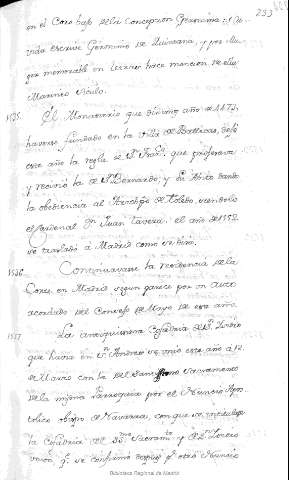 233
en el Coro bajo de la Concepcion Geronima, y su
vida escrive Geronimo de Quintana, y por mu-
ger memorable en letras hace mencion de ella
Marineo Siculo.
1535. El Monasterio que dio año de 1473.
haverse fundado en la Villa de Ballecas, dejó
este año la regla de Sn. que profesava
y recivió la de Sn. Bernardo; y su Abito dando
la obediencia al Arzobpo. de Toledo, siendolo
el Cardenal Dn. Juan Tavera; el año de 1552.
se trasladó a Madrid como se dirá.
1536. Continuavase la residencia de la
Corte en Madrid segun parece por un Auto
acordado del Consejo de Mayo de este año.
1537 La antiquisima Cofradia de Sn.
que havia en Sn. Andres se unió este año a 12.
de Marzo con la del Santissimo Sacramento
de la misma Parroquia por el Nuncio Apos-
tolico obispo de, con que se
la Cofradia del SSmo. Sacramto. y de Sn.
q. se confirmó despues pr. otro Nuncio
Biblioteca Regional de Madrid